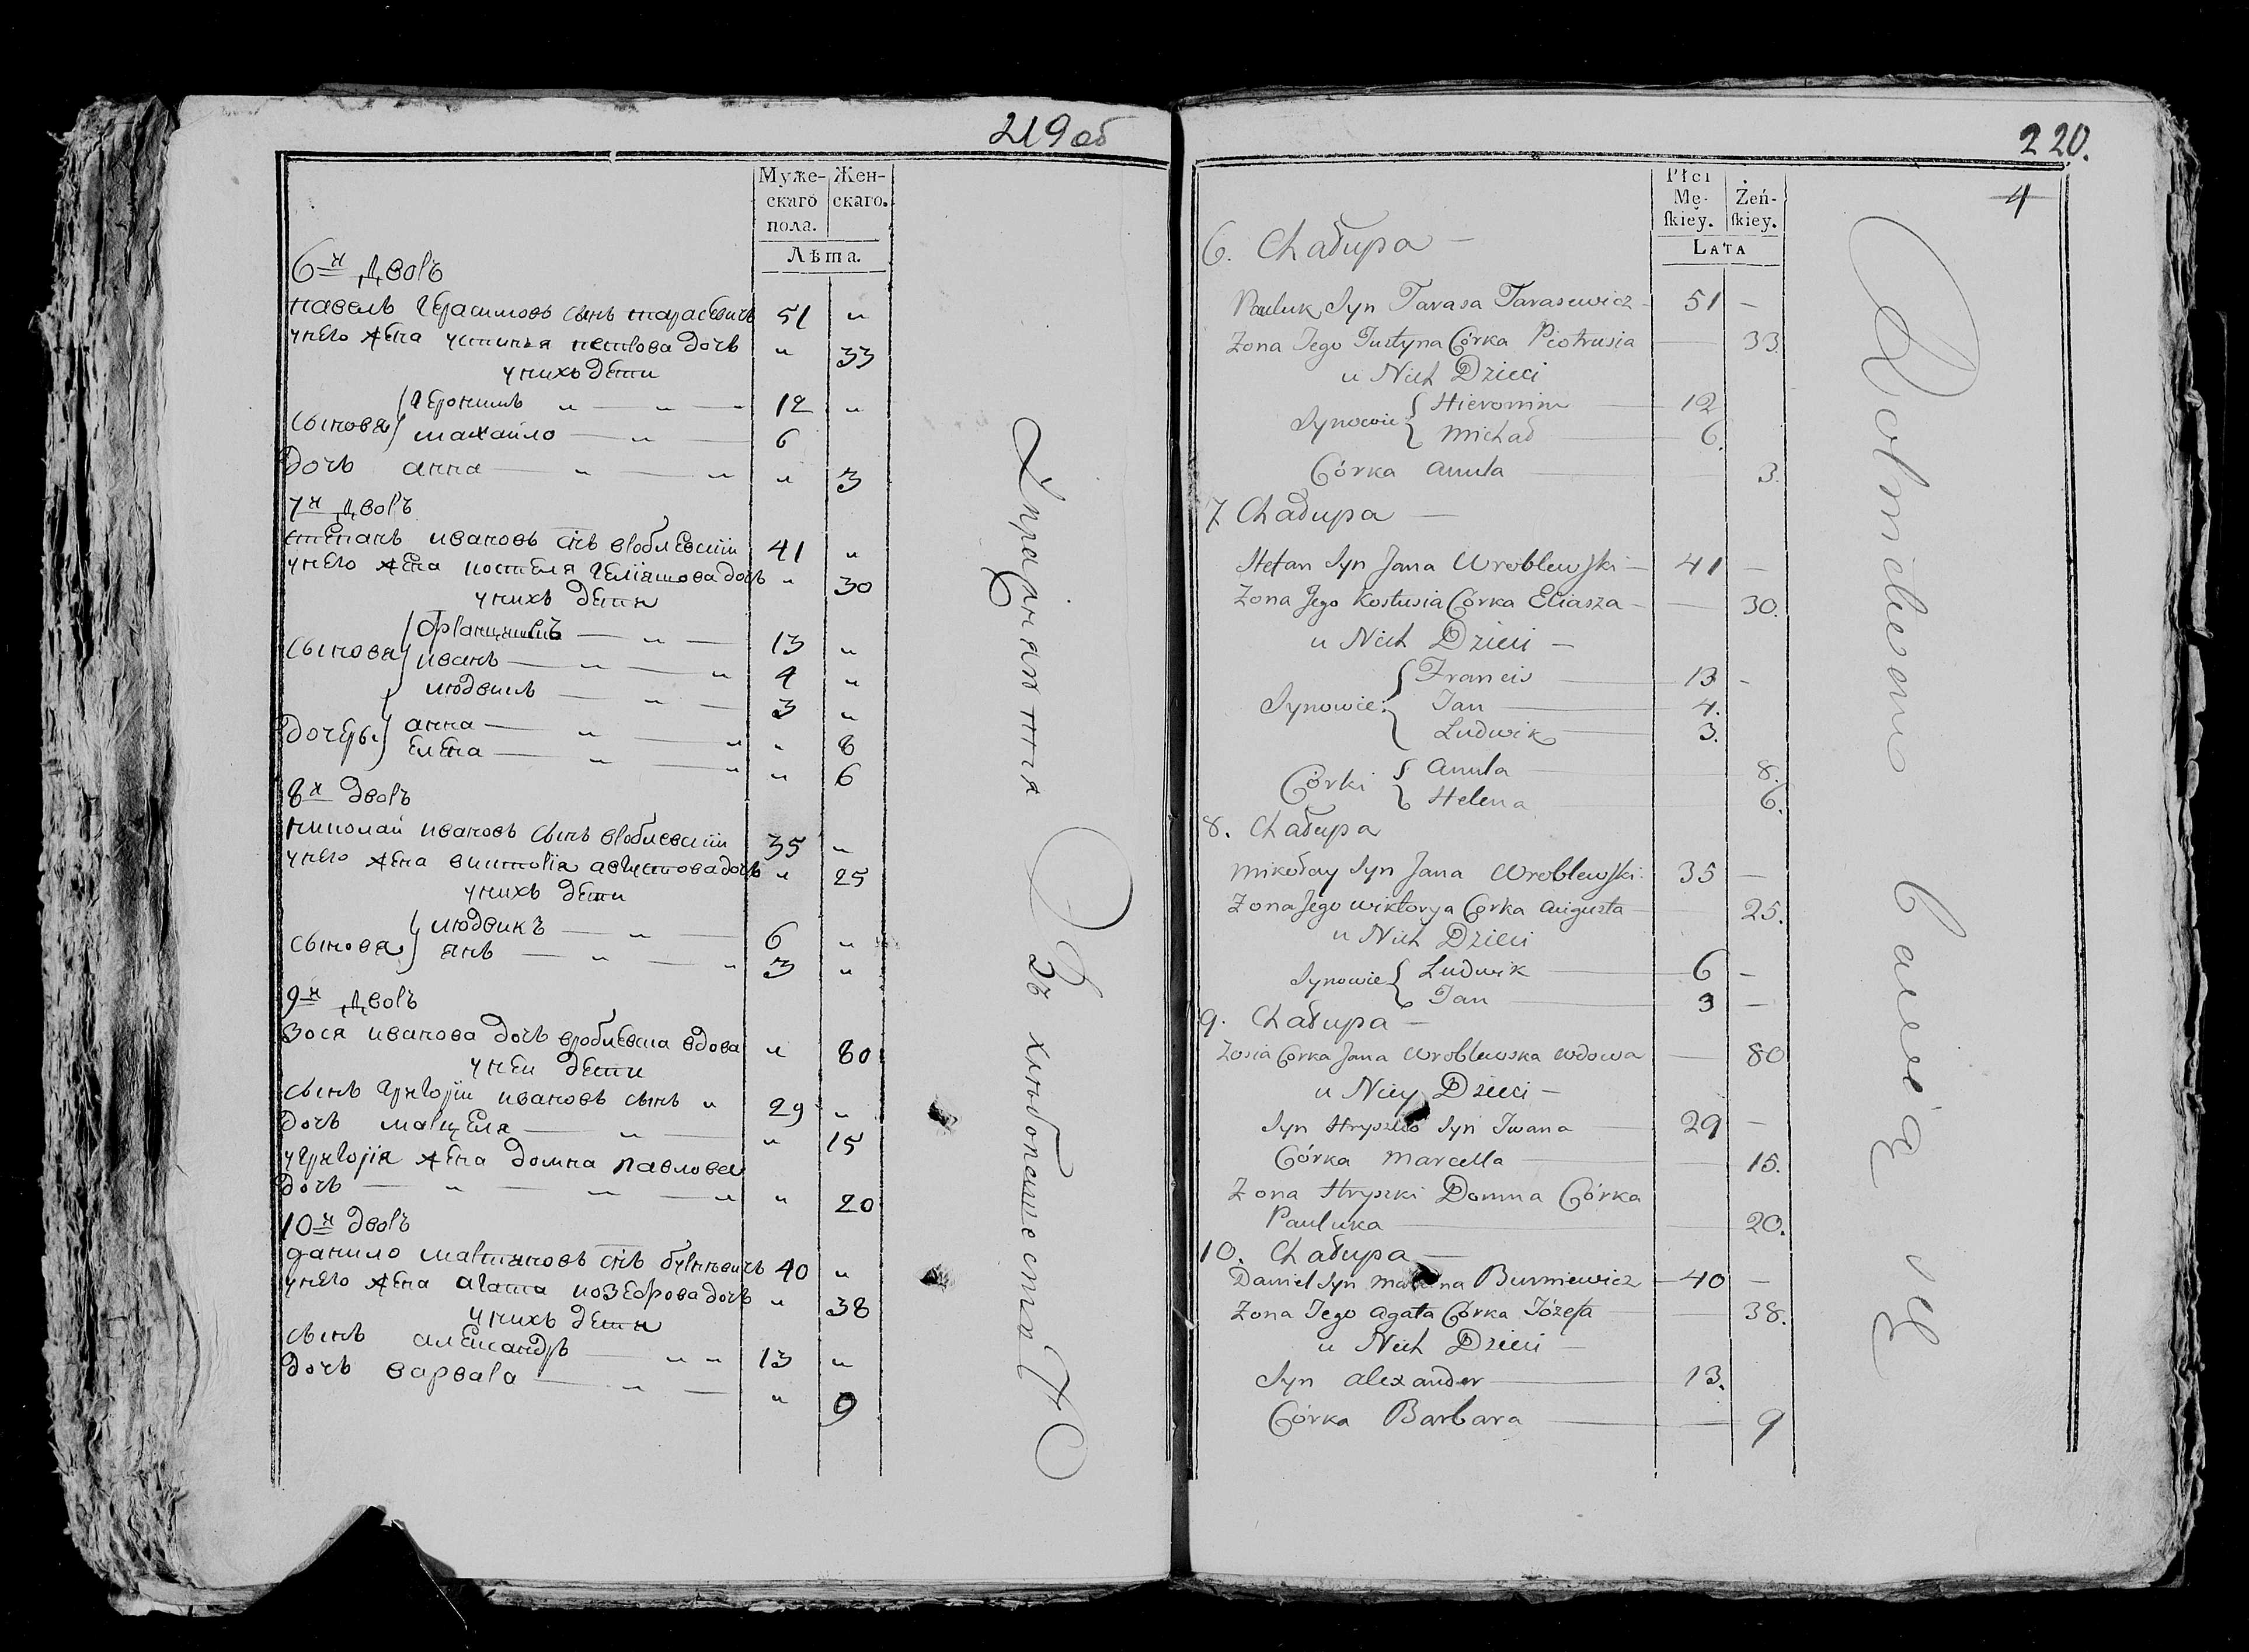 219 об
Муже-
скаго
пола.
Жен-
скаго.
Лѣта.
6й Дворъ
павелъ Герасимовъ сынъ тарасевичъ 51 "
унего жена устинья петрова дочь " 33
унихъ дети
Геронимъ " — " — " 12 "
сыновя
михайло — " — 6
дочь анна — " — " " 3
7й дворъ
степанъ ивановъ снъ вроблевскии 41 "
унего жена костуся Гелiяшова дочь " 30
унихъ дети
францишекъ — " — 13 "
сыновя иванъ — " — " 4 "
людвикъ — " — 3 "
дочеры анна — " — " " 8
елена — " — " " 6
8й дворъ
николай ивановъ сынъ вроблевскии 35 "
унего жена викторiя августова дочь " 25
унихъ дети
людвикъ — " — 6 "
сыновя янъ — " — " 3 "
9й дворъ
зося иванова дочь вроблевска вдова " 80
унеи дети
сынъ григорiи ивановъ сынъ " 29 "
дочь марцеля — " — " 15
угригорiя жена домна павлова
дочь — " — " — " " 20
10й дворъ
данило мартиновъ снъ бурневичъ 40 "
унего жена агата иозефова дочь " 38
унихъ дети
сынъ александръ — " " 13 "
дочь варвара — " — " 9
Въ хлебопашестве
220.
4
Płci
Mę-
ſkiey.
Żeń-
ſkiey.
LATA
6. Chałupa —
Pauluk Syn Tarasa Tarasewicz — 51 —
Zona Jego Justyna Córka Piotrusia — 33.
u Nich Dzieci
Hieronim — 12
Synowie
Michał — 6.
Córka Anula — 3.
7. Chałupa —
Stefan Syn Jana Wroblewſki — 41 —
Zona Jego Kostusia Córka Eliasza — 30.
u Nich Dzieci —
Francis — 13 —
Synowie Jan — 4.
Ludwik — 3.
Córki Anula — 8.
Helena — 6.
8. Chałupa
Mikołay Syn Jana Wroblewſki 35 —
Zona Jego Wiktorya Corka Augusta — 25.
u Nich Dzieci
Synowie Ludwik — 6 —
Jan — 3 —
9. Chałupa —
Zosia Corka Jana Wroblewska wdowa — 80
u Niey Dzieci —
Syn Hryszko Syn Iwana — 29 —
Córka Marcella — 15.
Zona Hryszki Domna Córka
Pauluka — 20.
10. Chałupa —
Daniel Syn Burniewicz — 40 —
Zona Jego Agata Córka Józefa — 38.
u Nich Dzieci —
Syn Alexander — 13.
Córka Barbara — 9